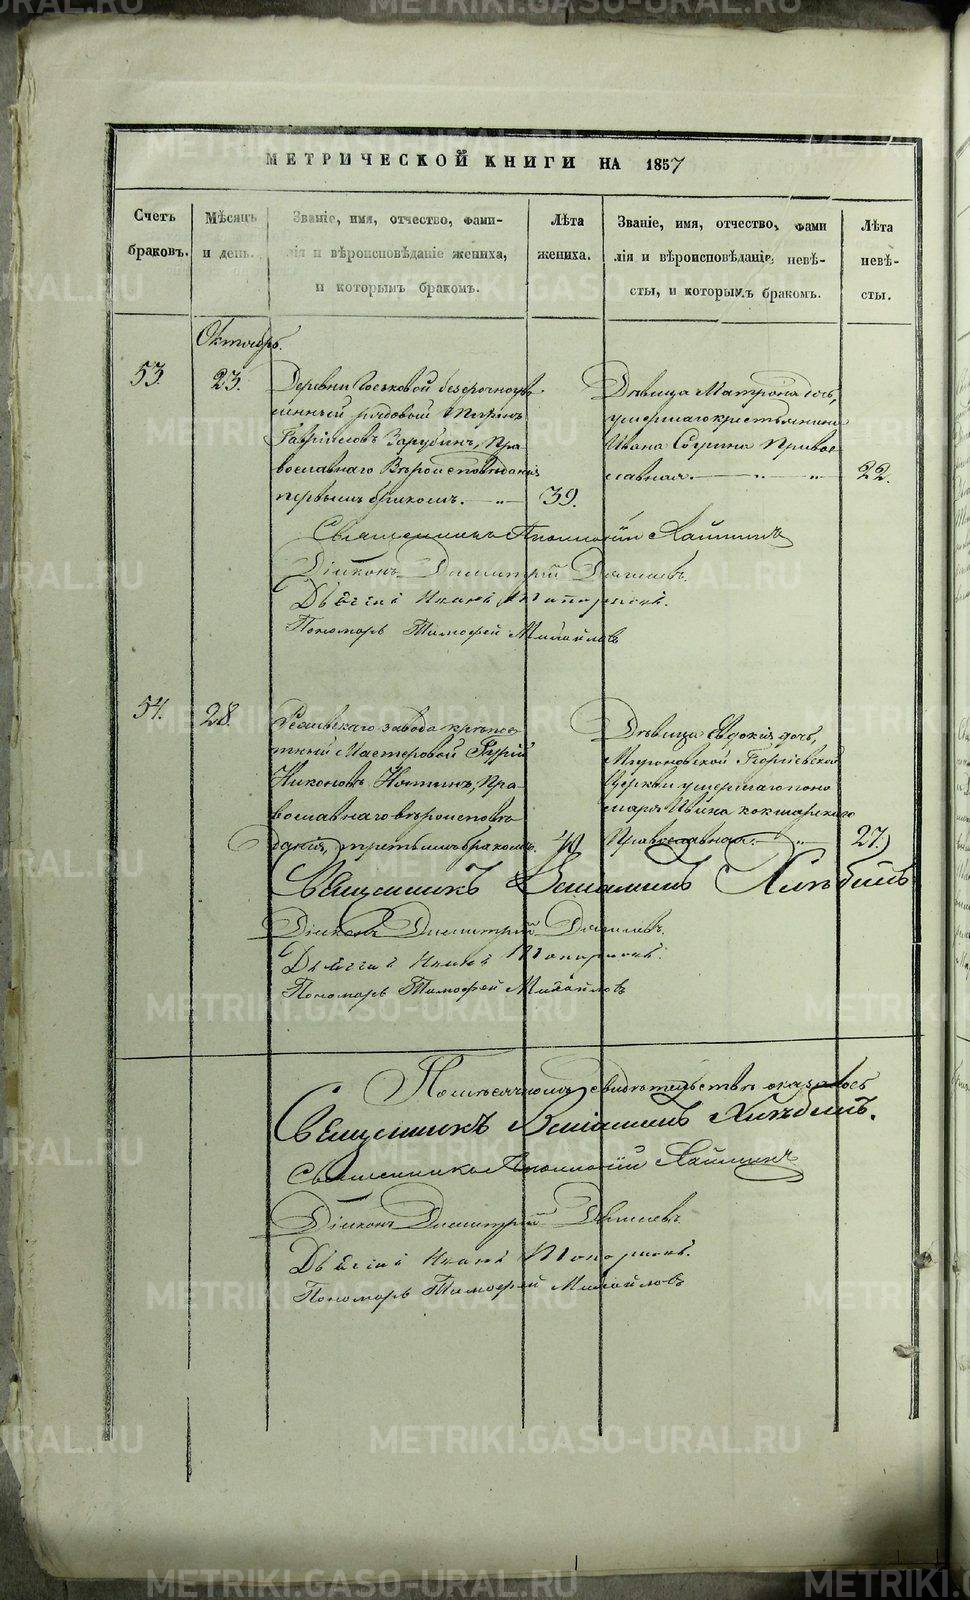 МЕТРИЧЕСКОЙ КНИГИ НА 1857
Счетъ браковъ.
Мѣсяцъ и день.
Званіе, имя, отчество, фами-
лія и вѣроисповѣданіе жениха,
и которымъ бракомъ.
Лѣта жениха.
Званіе, имя, отчество, фами
лія и вѣроисповѣданіе невѣ-
сты, и которымъ бракомъ.
Лѣта невѣ-
сты.
Октябрь.
53.
23.
Деревни безсрочноотпу-
щенный рядовой
Зарубинъ, Пра-
вославнаго Вѣроисповѣданія
первымъ бракомъ.
39.
Дѣвица Матрона дочь,
умершаго крестьянина
Ивана Правос-
лавная.
22.
Священникъ
Діаконъ Димитрій
Дьячекъ Иванъ Топорковъ.
Пономарь Тимофей Михайловъ
54.
28.
Режевскаго завода крѣпос-
тный Мастеровой Гурій
Никоновъ Пра-
вославнаго вѣроисповѣ
данія, третьимъ бракомъ.
40
Дѣвица Евдокія дочь,
Мироновской Георгіевской
Церкви умершаго поно
маря Кокшарскаго
Православная.
27.
Священникъ Веніаминъ Хлѣбинъ
Діаконъ Димитрій
Дьячекъ Иванъ Топорковъ.
Пономарь Тимофей Михайловъ
По мѣсячному свидѣтельству оказалось
Священникъ Веніаминъ Хлѣбинъ.
Священникъ
Діаконъ Димитрій
Дьячекъ Иванъ Топорковъ.
Пономарь Тимофей Михайловъ
METRIKI.GASO-URAL.RU